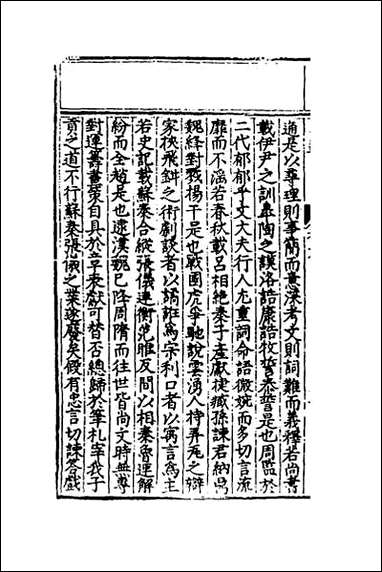 通是以尋理則事簡而意深考文則詞難而義釋若尚書
載伊尹之訓皋陶之謨洛誥康誥牧誓泰誓是也周監於
二代郁郁乎文大夫行人尤重詞命語微婉而多切言流
靡而不淫若春秋載呂相絶秦子產獻捷臧孫諫君納鼎
魏絳對戮楊干是也戰國虎爭馳說雲湧人持弄丸之辯
家挾飛鉗之術劇談者以譎誑爲宗利口者以寓言爲主
若史記載蘇秦合縱張儀連衡范雎反間以相秦魯連解
紛而全趙是也逮漢魏已降周隋而往世皆尚文時無專
對運籌畫策自具於章表獻可替否總歸於筆札宰我子
貢之道不行蘇秦張儀之業遂廢矣假有忠言切諫答戲